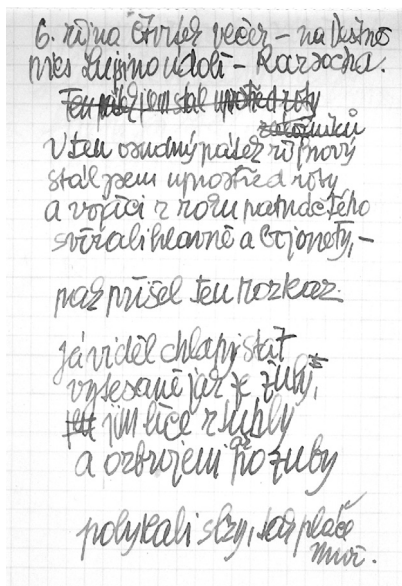 6. října čtvrtek večer – na Vestno
přes Lujino údolí – Rarocha.
Ten pátek jsem stál uprostřed roty
záložníků
V ten osudný pátek říjnový
stál jsem uprostřed roty
a vojíci z roku patnáctého
svírali hlavně a bajonety, –
pak přišel ten rozkaz.
Já viděl chlapy stát
vytesané jak ze žuly,
jim líce zsinaly
a ozbrojeni až po zuby
polykali slzy, jak pláče
muž.